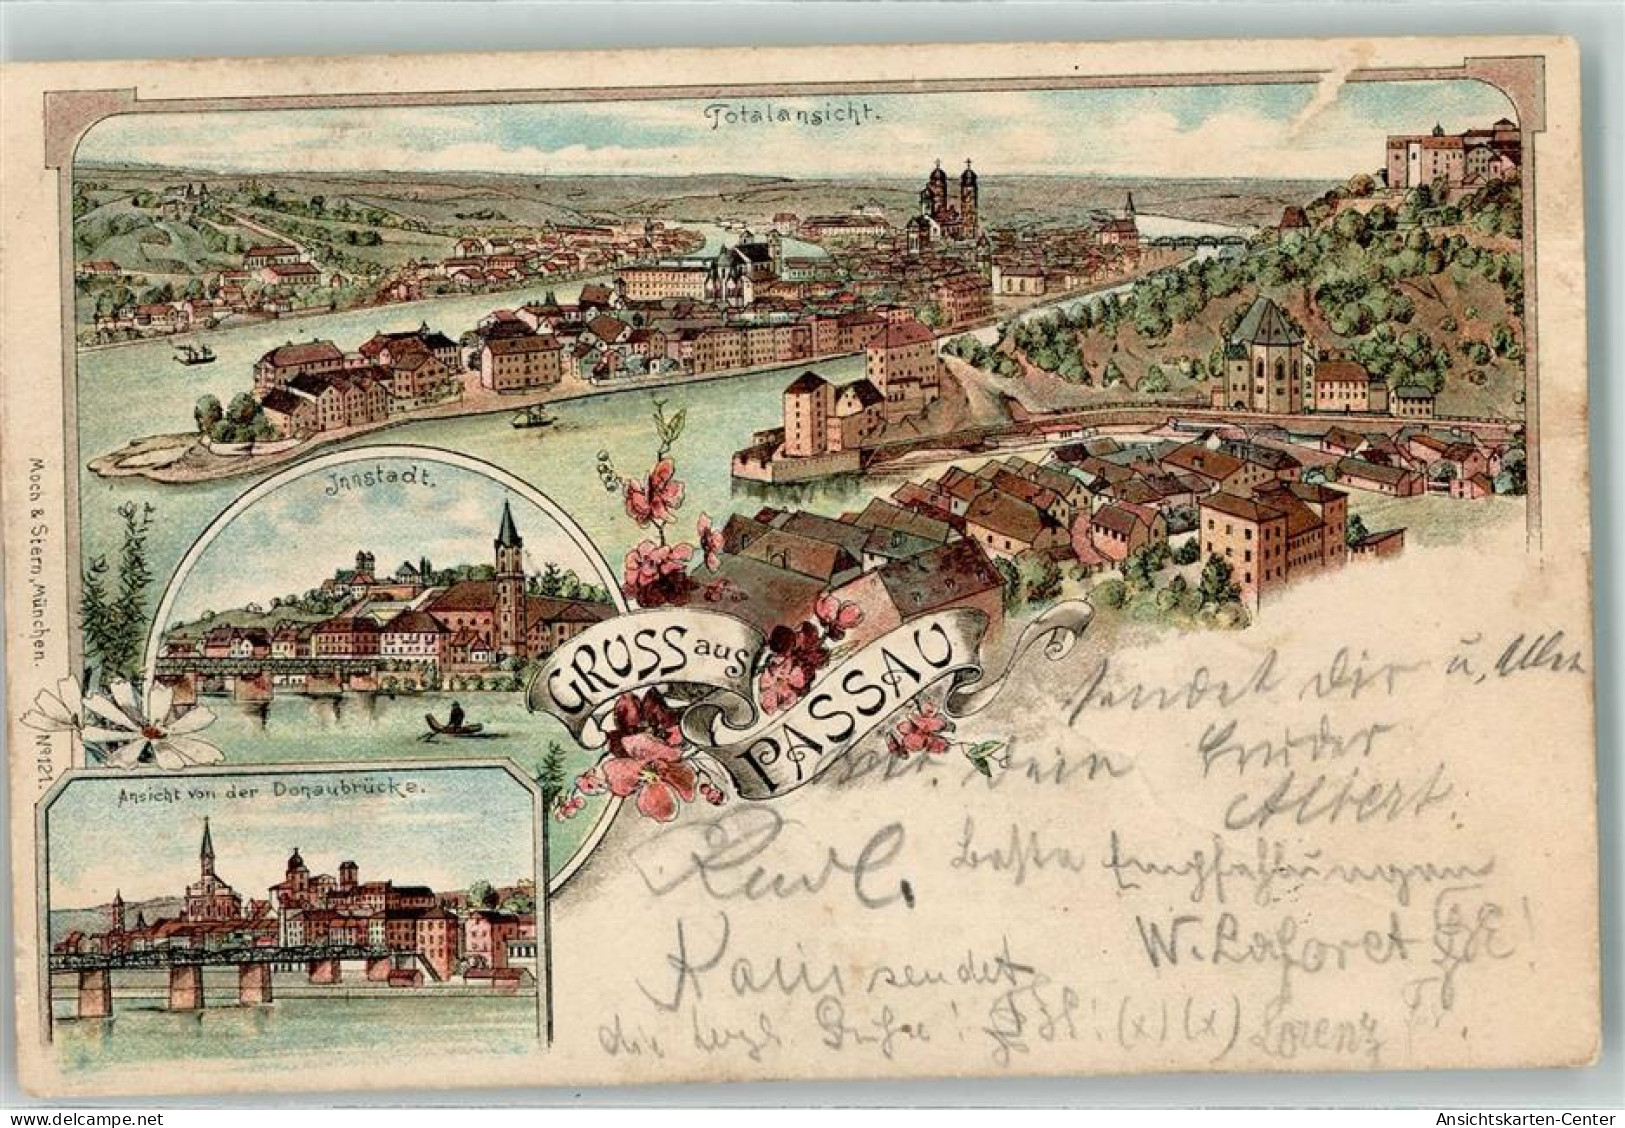 Totalansicht.
Innstadt.
GRUSS aus
PASSAU
Ansicht von der Donaubrücke.
Moch & Stern, München.
Nº 121.
sendet Dir u. Allen
dein Bruder
Albert.
Karl
beste Empfehlungen
W. Laforet
sendet
die herzl. Grüße! (x) (x) Lorenz
Ansichtskarten-Center